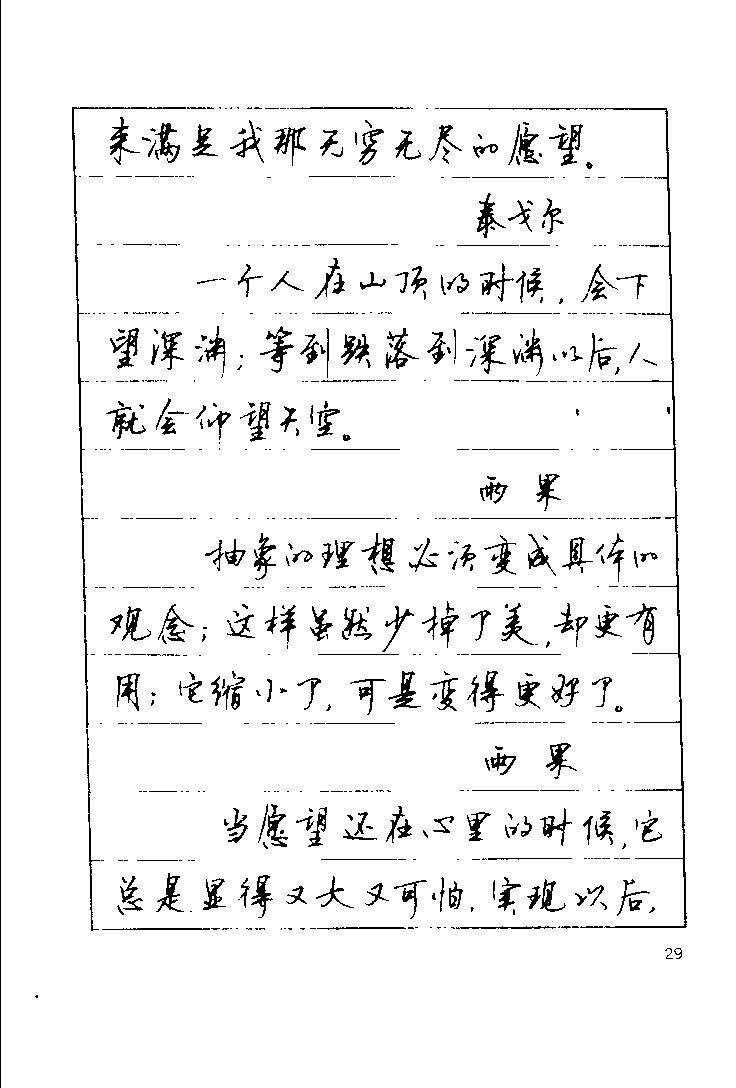 来满足我那无穷无尽的愿望。
泰戈尔
一个人在山顶的时候，会下
望深渊；等到跌落到深渊以后，人
就会仰望天空。
雨果
抽象的理想必须变成具体的
观念；这样虽然少掉了美，却更有
用；它缩小了，可是变得更好了。
雨果
当愿望还在心里的时候，它
总是显得又大又可怕，实现以后，
29